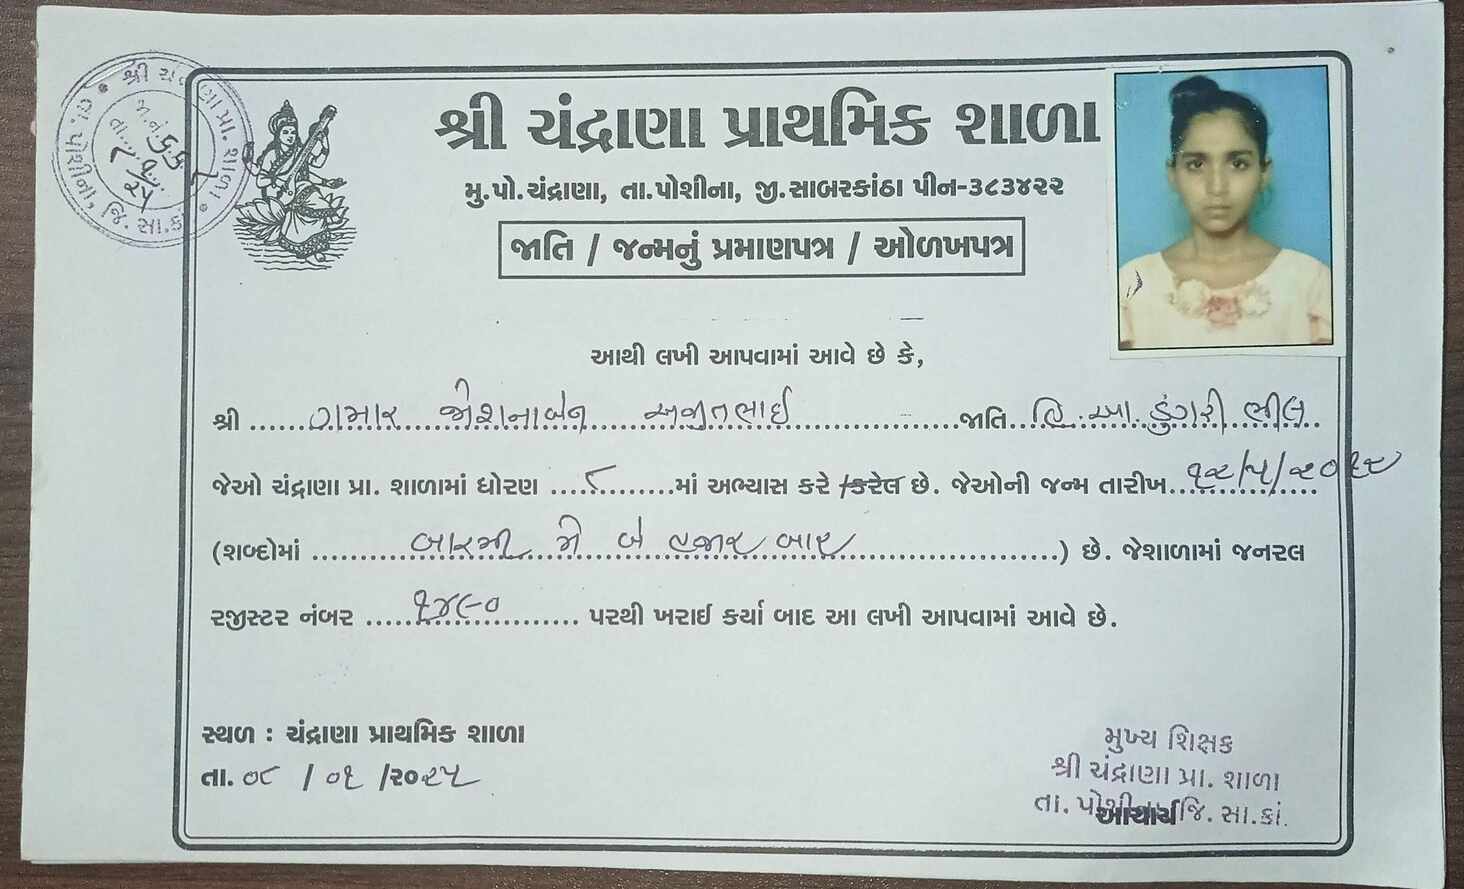 શ્રી ચંદ્રાણા પ્રાથમિક શાળા
મુ.પો.ચંદ્રાણા, તા.પોશીના, જી.સાબરકાંઠા પીન-૩૮૩૪૨૨
જાતિ / જન્મનું પ્રમાણપત્ર / ઓળખપત્ર
આથી લખી આપવામાં આવે છે કે,
શ્રી ગમાર જોશનાબેન અજીતભાઈ જાતિ હિ. આ. ડુંગરી ભીલ
જેઓ ચંદ્રાણા પ્રા. શાળામાં ધોરણ ૮ માં અભ્યાસ કરે /કરેલ છે. જેઓની જન્મ તારીખ ૧૨/૫/૨૦૧૨
(શબ્દોમાં બારમી મે બે હજાર બાર) છે. જેશાળામાં જનરલ
રજીસ્ટર નંબર ૧૪૯૦ પરથી ખરાઈ કર્યા બાદ આ લખી આપવામાં આવે છે.
સ્થળ : ચંદ્રાણા પ્રાથમિક શાળા
તા. ૦૮ / ૦૧ /૨૦૨૫
મુખ્ય શિક્ષક
શ્રી ચંદ્રાણા પ્રા. શાળા
તા. પોશીના જિ. સા.કાં.
આચાર્ય